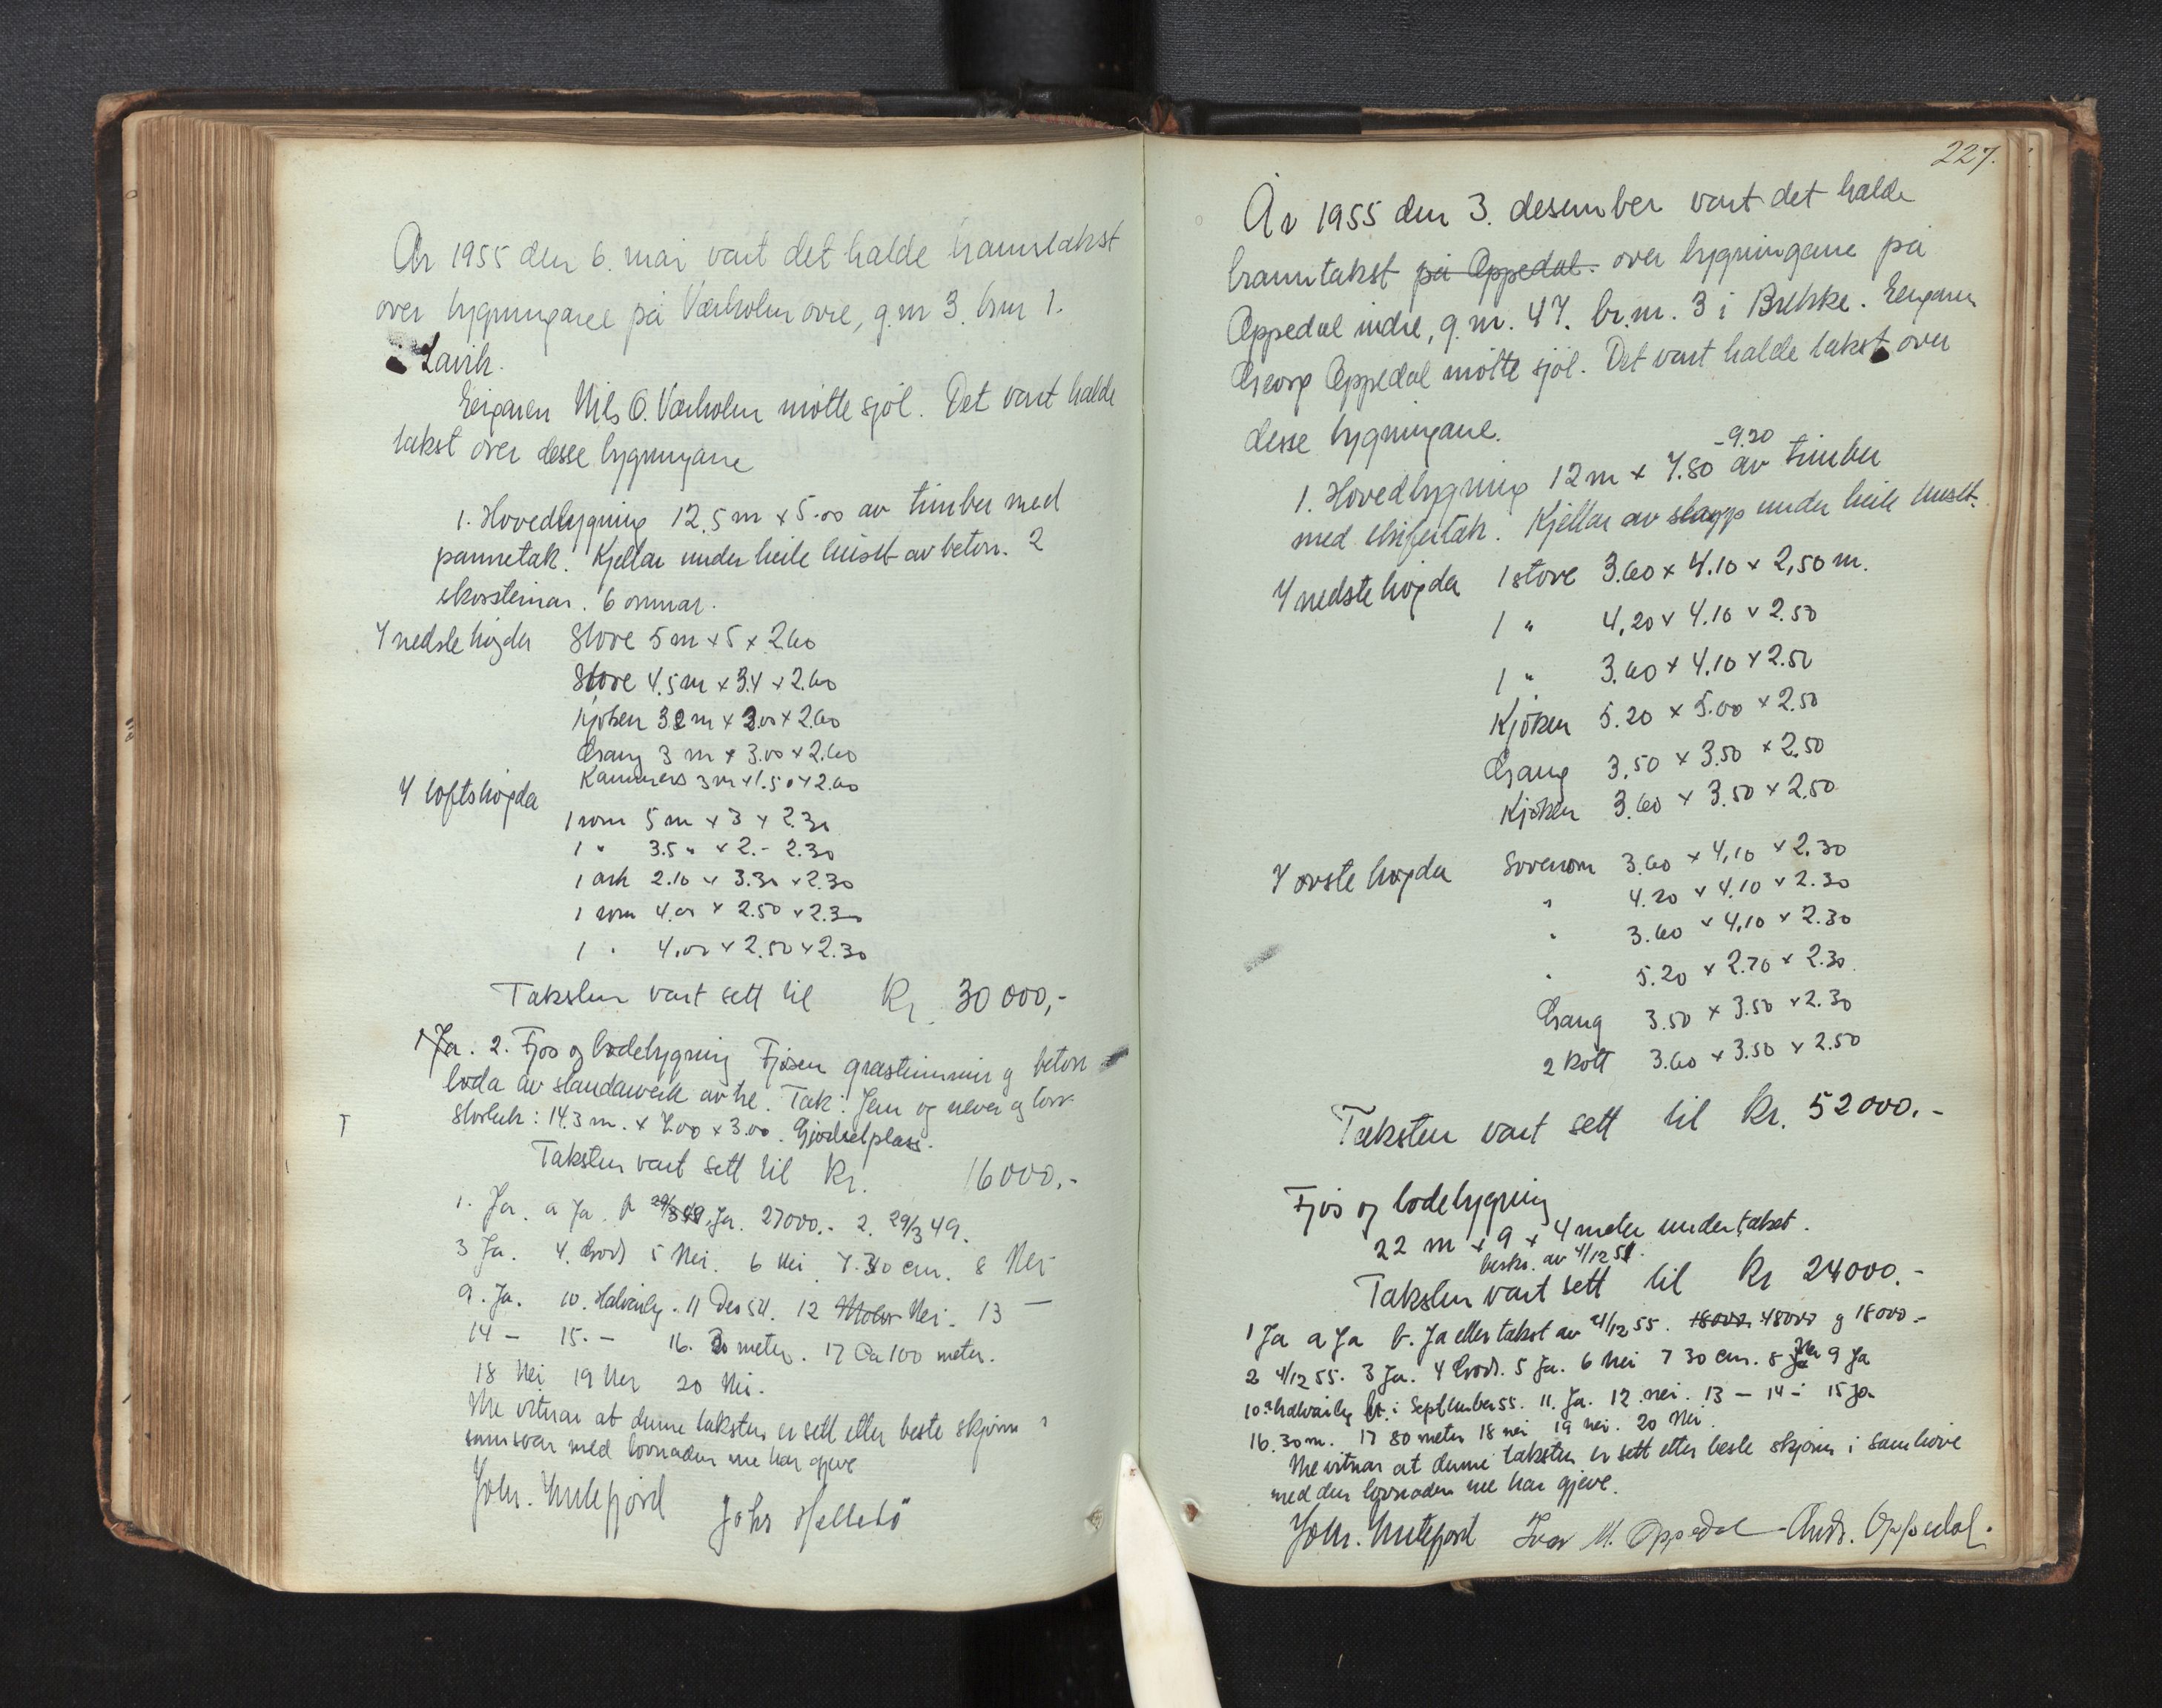 År 1955 den 6. mai vart det halde branntakst
over bygningane på Værholm øvre, g.nr 3. brnr 1.
i Lavik.
Eigaren Nils O. Værholm møtte sjøl. Det vart halde
takst over desse bygningane
1. Hovedbygning 12.5 m x 5.00 av timber med
pannetak. Kjellar under heile huset av beton. 2
skorsteinar. 6 omnar.
I nedste høgda Stove 5 m x 5 x 2.60
Stove 4.5 m x 3.4 x 2.60
Kjøken 3.2 m x 3.00 x 2.60
Gang 3 m x 3.00 x 2.60
Kammers 3 m x 1.50 x 2.60
I loftshøgda
1 rom 5 m x 3 x 2.30
1 " 3.5 " x 2.- 2.30
1 ark 2.10 x 3.30 x 2.30
1 rom 4.00 x 2.50 x 2.30
1 " 4.00 x 2.50 x 2.30
Taksten vart sett til Kr. 30 000,-
1 Ja. 2. Fjøs og lødebygning Fjøsen gråsteinsmur og betong
løda av standarverk av tre. Tak: Jern og never og torv
Storleik: 14.3 m. x 7.00 x 3.00. Gjødselplass.
Taksten vart sett til Kr. 16000.-
1. Ja. a Ja. b 29/3 49. Ja. 27000.- 2. 29/3 49.
3 Ja. 4. God 5 Nei. 6 Nei 7. 30 cm. 8 Nei
9. Ja. 10. Halvårleg. 11 Des 54. 12 Nei. 13 —
14 — 15. — 16. 30 meter. 17 Ca 100 meter.
18 Nei 19 Nei 20 Nei.
Me vitnar at denne taksten er sett etter beste skjønn i
samsvar med lovnaden me har gjeve
Joh. Hellebø
227.
År 1955 den 3. desember vart det halde
branntakst på Oppedal. over bygningane på
Oppedal indre, g.nr. 47. br.nr. 3 i Brekke. Eigaren
Georg Oppedal møtte sjøl. Det vart halde takst over
desse bygningane.
- 9.20
1. Hovedbygning 12 m x 7.80 av timber
med skifertak. Kjellar av støypt under heile huset.
I nedste høgda 1 stove 3.60 x 4.10 x 2,50 m.
1 " 4,20 x 4.10 x 2.50
1 " 3.60 x 4.10 x 2.50
Kjøken 5.20 x 5.00 x 2.50
Gang 3.50 x 3.50 x 2.50
Kjøken 3.60 x 3.50 x 2.50
I øvste høgda Soverom 3.60 x 4,10 x 2.30
" 4.20 x 4.10 x 2.30
" 3.60 x 4,10 x 2.30
" 5.20 x 2.70 x 2.30
Gang 3.50 x 3.50 x 2.30
2 kott 3.60 x 3.50 x 2.50
Taksten vart sett til Kr. 52000.-
Fjøs og lødebygning
22 m x 9 x 4 meter under taket.
beskr. av 4/12 51.
Taksten vart sett til Kr 24000.-
1 Ja a Ja b. Ja etter takst av 4/12 55. 18000. 48000 og 18000.-
2 4/12 55. 3 Ja. 4 God. 5 Ja. 6 Nei 7 30 cm. 8 Ja Nei 9 Ja
10 a halvårleg b. i September 55. 11. Ja. 12. nei. 13 — 14 — 15 Ja
16. 30 m. 17 80 meter 18 nei 19 nei. 20 Nei.
Me vitnar at denne taksten er sett etter beste skjønn i samhøve
med den lovnaden me har gjeve.
Ivar M. Oppedal Andr. Oppedal.